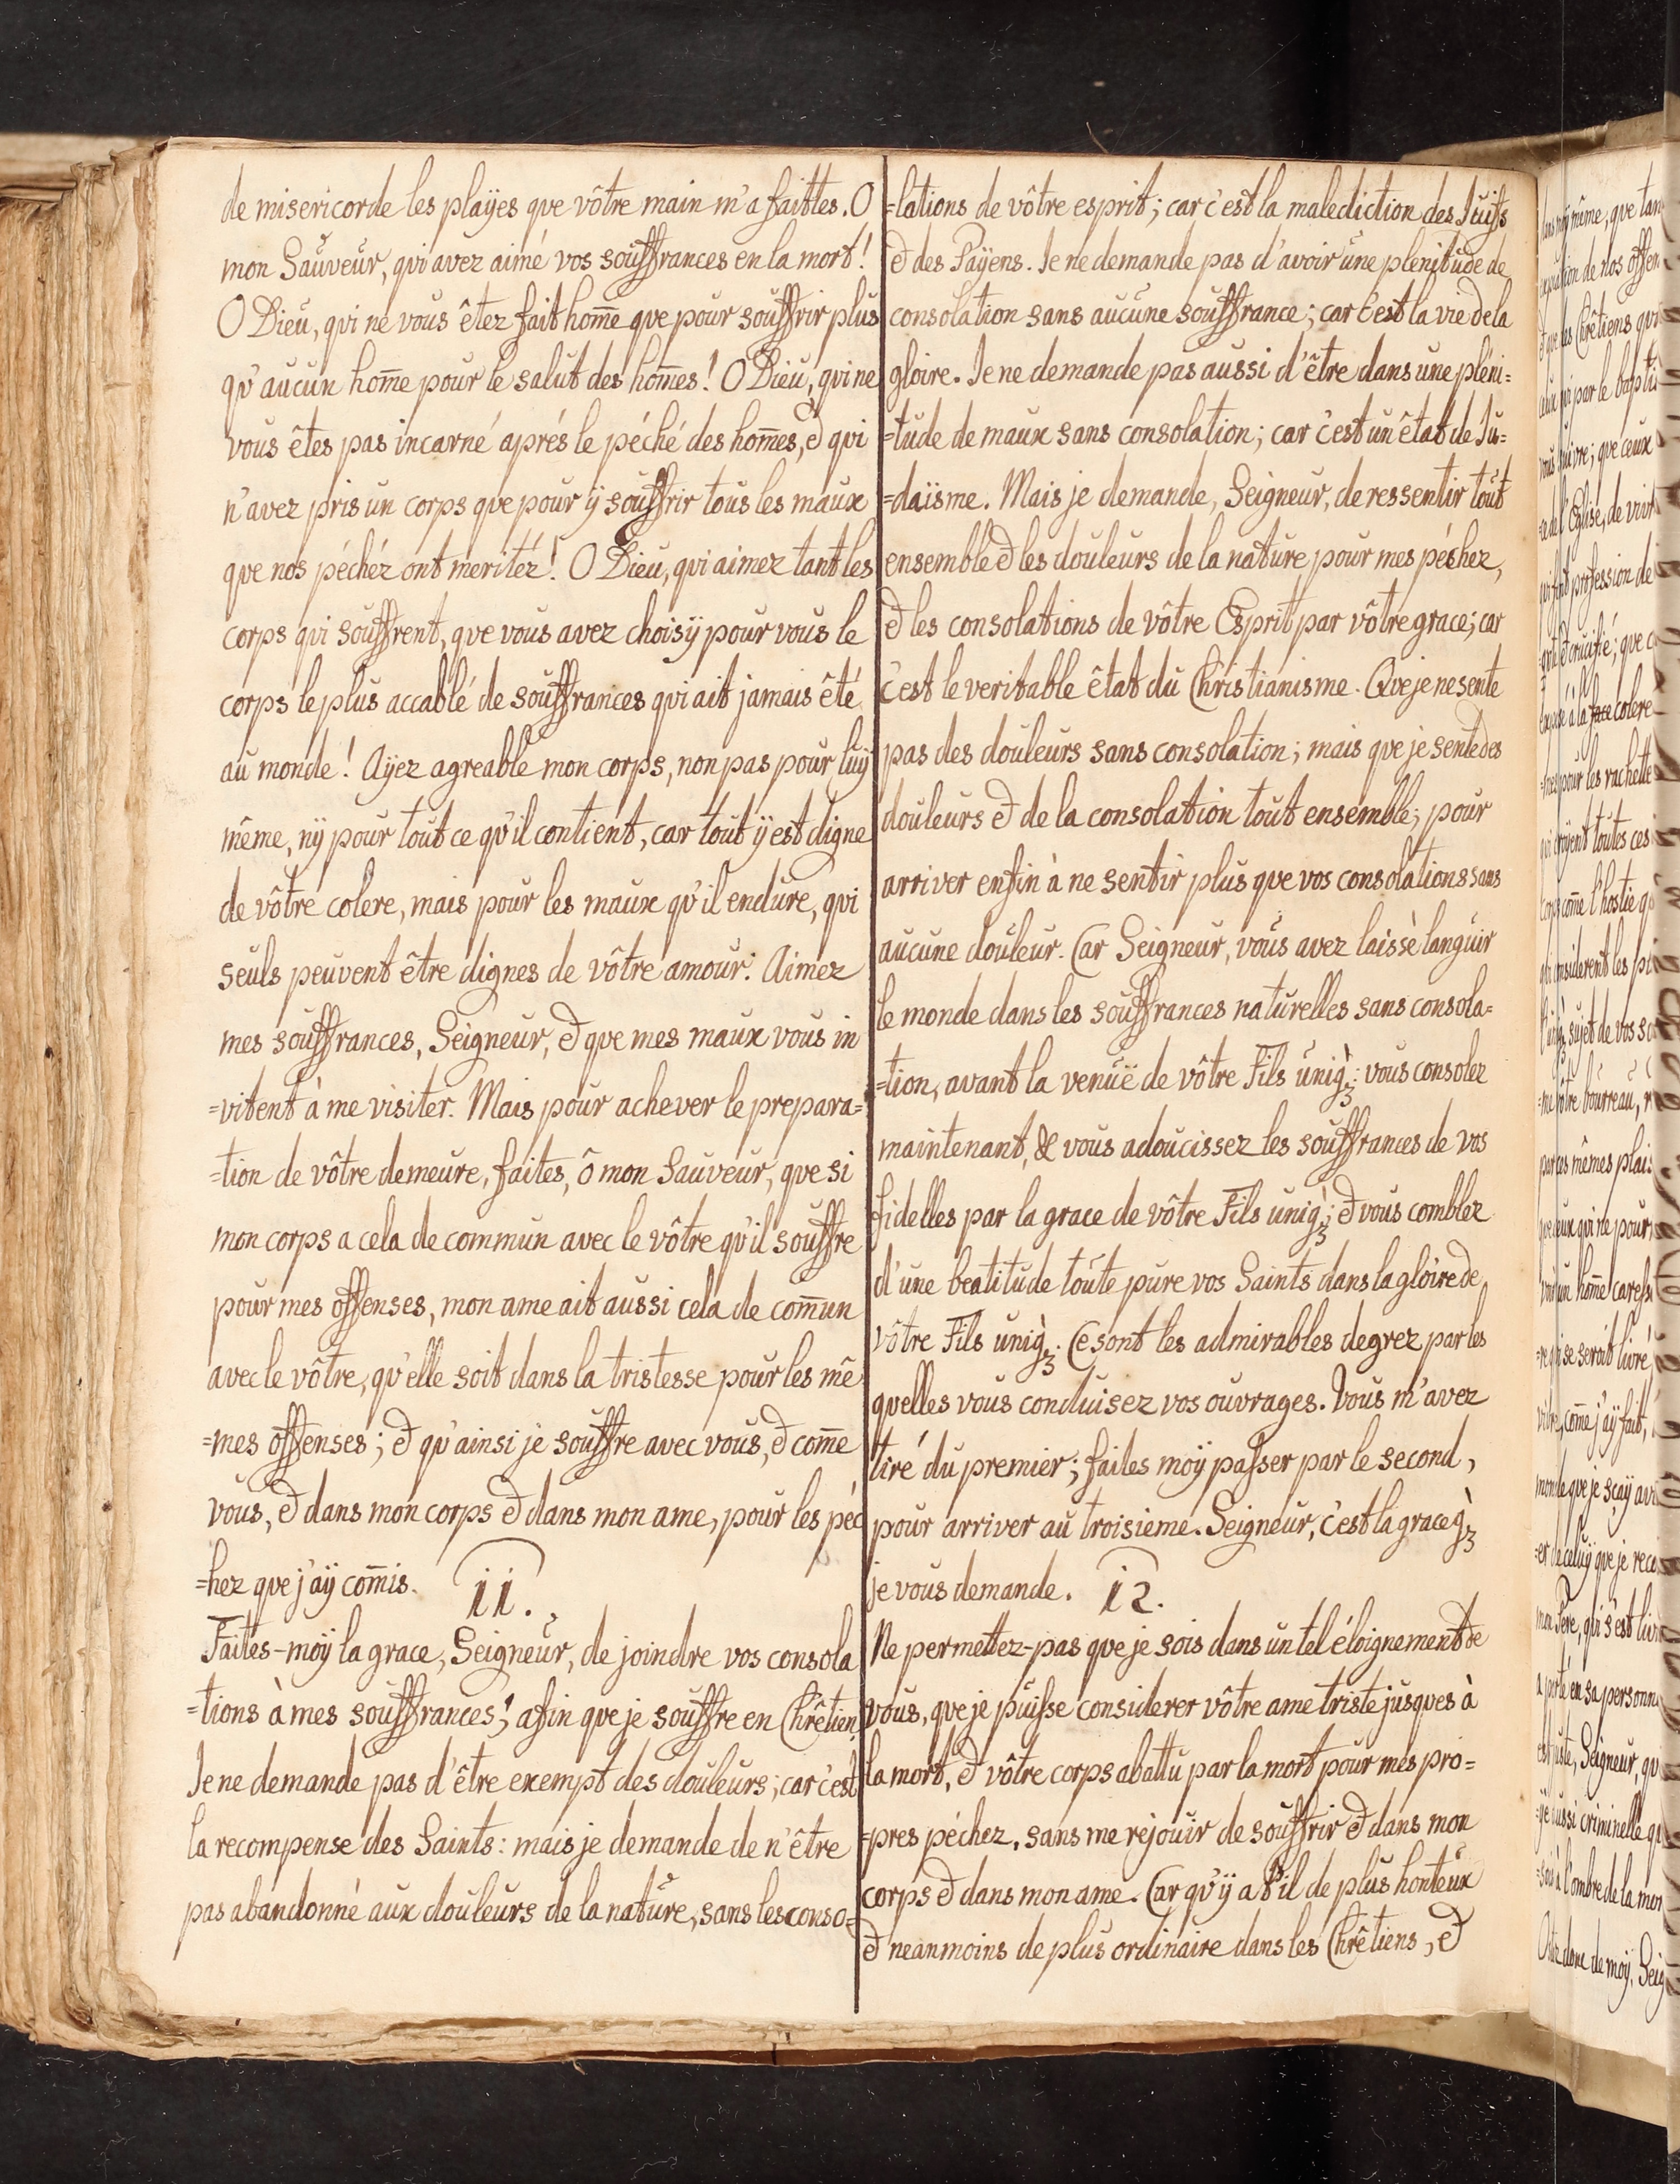 de misericorde les playes que vôtre main m'a faittes. O
mon Sauveur, qui avez aimé vos souffrances en la mort!
O Dieu, qui ne vous êtez fait hom̄e que pour souffrir plus
qu'aucun hom̄e pour le salut des hom̄es! O Dieu, qui ne
vous êtes pas incarné aprés le péché des hom̄es, & qui
n'avez pris un corps que pour ÿ souffrir tous les maux
que nos péchéz ont meritéz! O Dieu, qui aimez tant les
corps qui souffrent, que vous avez choisÿ pour vous le
corps le plus accablé de souffrances qui ait jamais êté
au monde! Ayez agreable mon corps, non pas pour luÿ
même, nÿ pour tout ce qu'il contient, car tout ÿ est digne
de vôtre colere, mais pour les maux qu'il endure, qui
seuls peuvent être dignes de vôtre amour. Aimez
mes souffrances, Seigneur, & que mes maux vous in
=vitent à me visiter. Mais pour achever le prepara=
=tion de vôtre demeure, faites, ô mon Sauveur, que si
mon corps a cela de commun avec le vôtre qu'il souffre
pour mes offenses, mon ame ait aussi cela de com̄un
avec le vôtre, qu'elle soit dans la tristesse pour les mê
=mes offenses; & qu'ainsi je souffre avec vous, & com̄e
vous, & dans mon corps & dans mon ame, pour les péc
=hez que j'aÿ com̄is.
11.
Faites-moÿ la grace, Seigneur, de joindre vos consola
=tions à mes souffrances; afin que je souffre en Chrêtien.
Je ne demande pas d'être exempt des douleurs; car c'est
la recompense des Saints: mais je demande de n'être
pas abandonné aux douleurs de la nature, sans les conso=
=lations de vôtre esprit; car c'est la malediction des Juifs
& des Paÿens. Je ne demande pas d'avoir une plenitude de
consolation sans aucune souffrance; car c'est la vie de la
gloire. Je ne demande pas aussi d'être dans une pléni=
=tude de maux sans consolation; car c'est un êtat de Ju=
=daïsme. Mais je demande, Seigneur, de ressentir tout
ensemble & les douleurs de la nature pour mes péchez,
& les consolations de vôtre Esprit par vôtre grace; car
c'est le veritable êtat du Christianisme. Que je ne sente
pas des douleurs sans consolation; mais que je sente des
douleurs & de la consolation tout ensemble; pour
arriver enfin à ne sentir plus que vos consolations sans
aucune douleur. Car Seigneur, vous avez laissè languir
le monde dans les souffrances naturelles sans consola=
=tion, avant la venuë de vôtre Fils uniq̀ꝫ: vous consolez
maintenant, & vous adoucissez les souffrances de vos
fidelles par la grace de vôtre Fils uniq̀ꝫ; & vous comblez
d'une beatitude toute pure vos Saints dans la gloire de
vôtre Fils uniq̀ꝫ. Ce sont les admirables degrez par les
quelles vous conduisez vos ouvrages. Vous m'avez
tiré du premier; faites moÿ passer par le second,
pour arriver au troisieme. Seigneur, c'est la grace q̀ꝫ
je vous demande.
12.
Ne permettez-pas que je sois dans un tel éloignement de
vous, que je puisse considerer vôtre ame triste jusques à
la mort, & vôtre corps abattu par la mort pour mes pro=
=pres péchez, sans me rejouir de souffrir & dans mon
corps & dans mon ame. Car qu'ÿ a t'il de plus honteux
& neanmoins de plus ordinaire dans les Chrêtiens, &